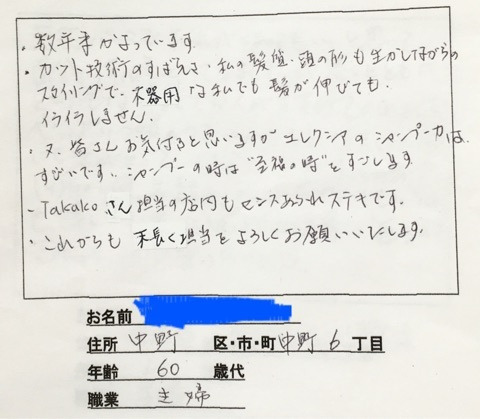 ・数年来かよっています。
・カット技術のすばらしさ、私の髪質、頭の形も生かしながらの
スタイリングで、不器用な私でも髪が伸びても
イライラしません。
・又、皆さんお気付きと思いますがエレクシアのシャンプー力は、
すごいです。シャンプーの時は"至福の時"をすごします
- Takakoさん担当の店内もセンスあふれステキです。
・これからも末長く担当をよろしくお願いいたします。
お名前
住所 中野 区・市・町 中野 6 丁目
年齢 60 歳代
職業 主婦